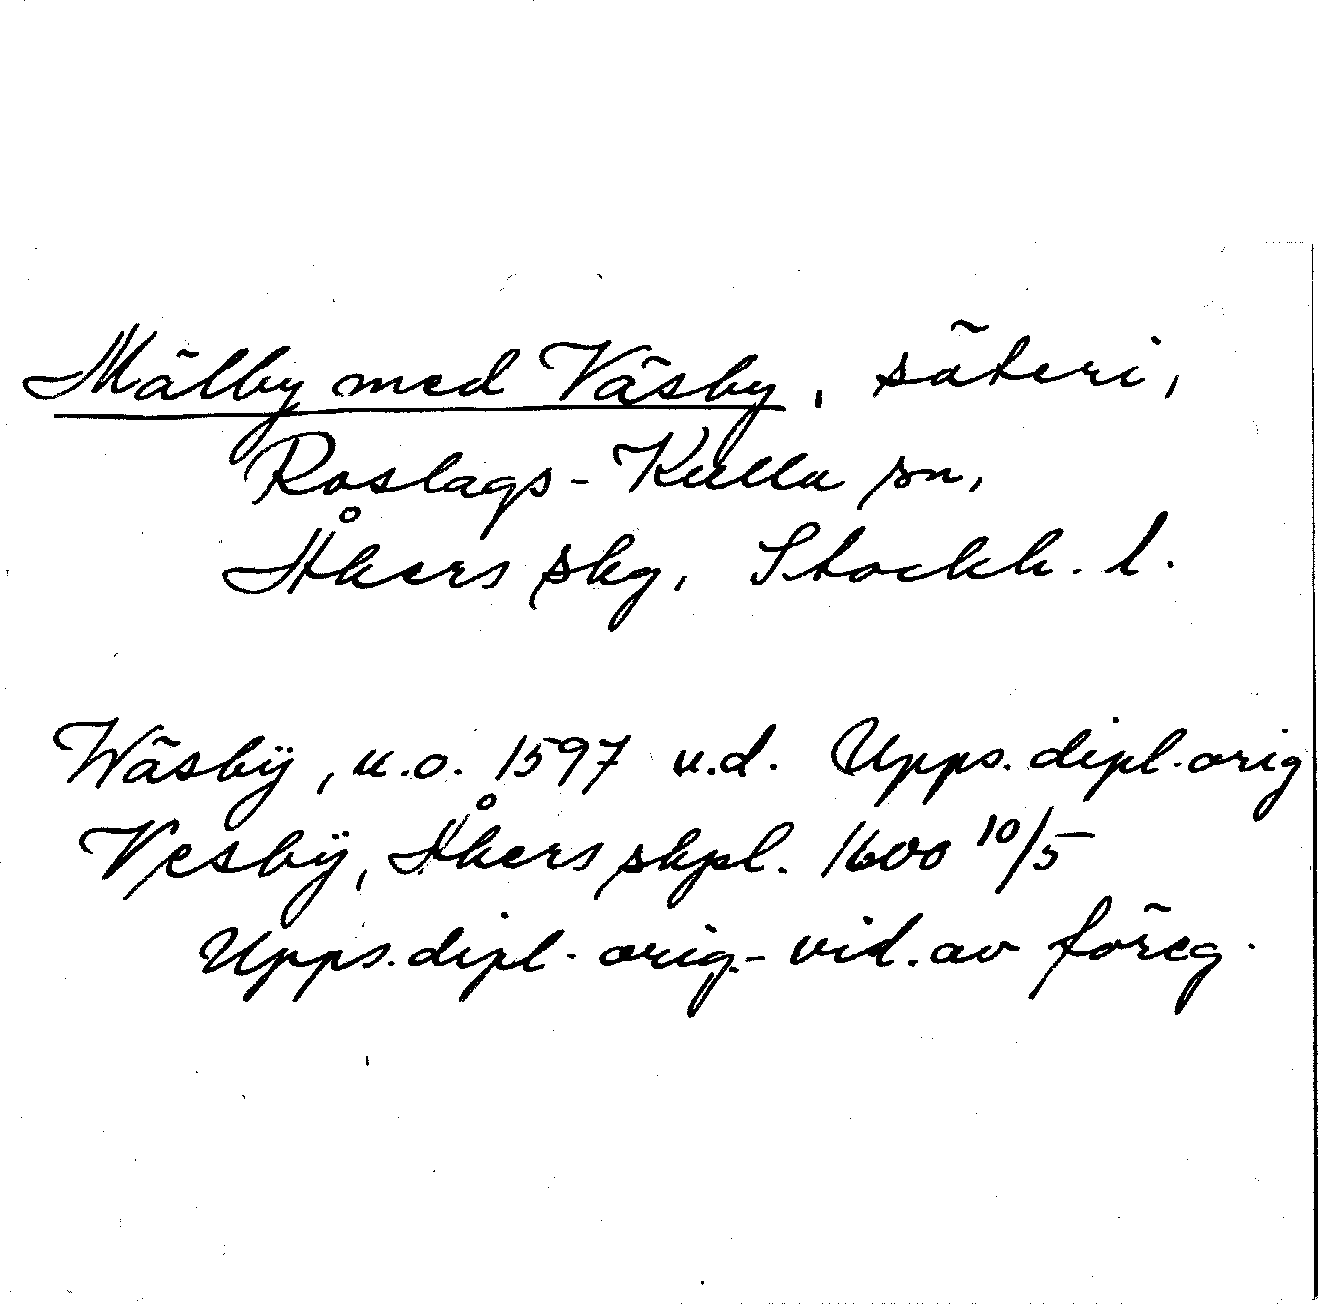 Mälby med Väsby, säteri,
Roslags-Kulla sn,
Åkers skg, Stockh. l.
Wäsbÿ, u.o. 1597 u.d. Upps. dipl. orig
Vesbÿ, Åkers skpl. 1600 10/5
Upps. dipl. orig. - vid. av föreg.